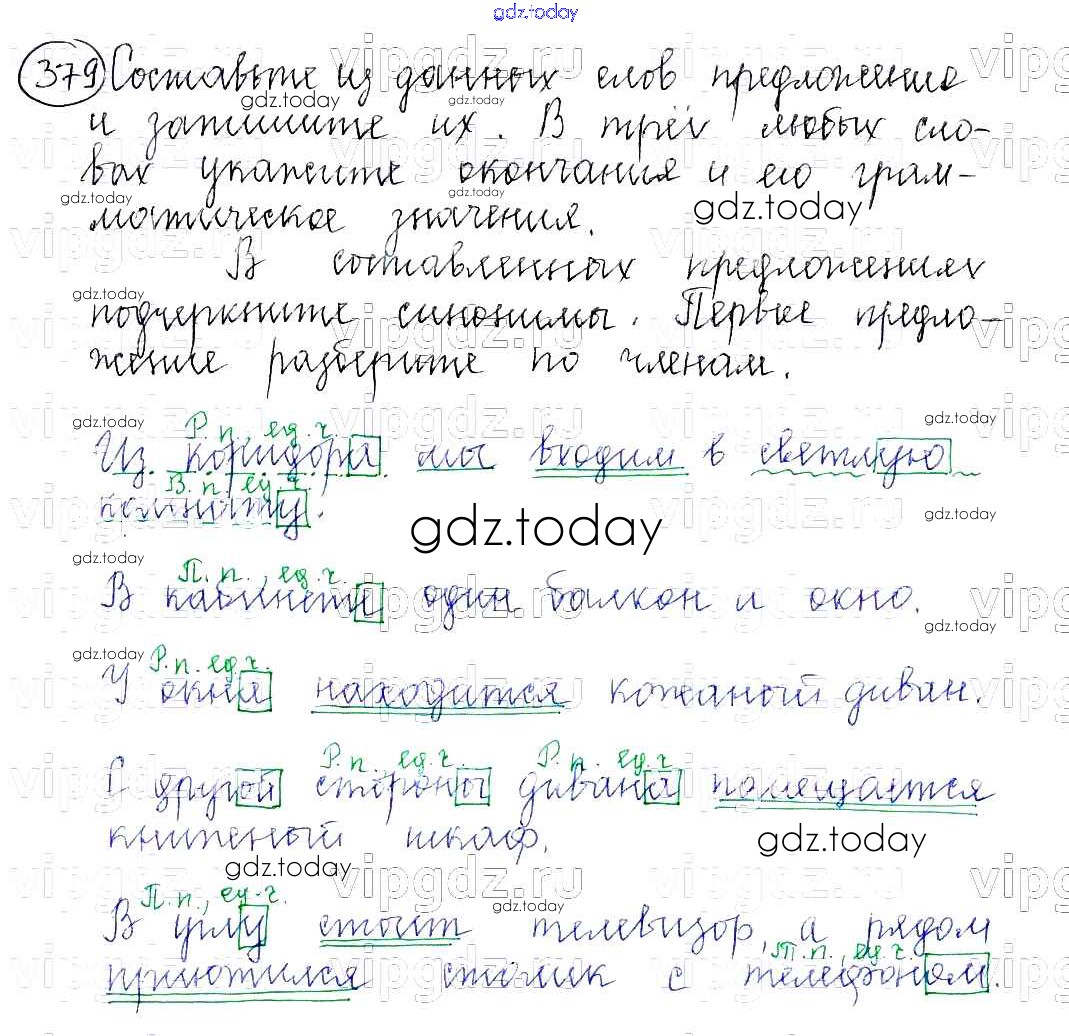 gdz.today
379 Составьте из данных слов предложение
и запишите их. В трёх любых сло-
вах укажите окончания и его грам-
матическое значения.
В составленных предложениях
подчеркните синонимы. Первое предло-
жение разберите по членам.
Р.п., ед.ч.
Из коридора мы входим в светлую
В.п., ед.ч.
комнату.
П.п., ед.ч.
В кабинете один балкон и окно.
Р.п. ед.ч.
У окна находится кожаный диван.
Р.п. ед.ч. Р.п., ед.ч.
С другой стороны дивана помещается
книжный шкаф.
П.п., ед.ч.
В углу стоит телевизор, а рядом
Т.п., ед.ч.
приютился столик с телефоном.